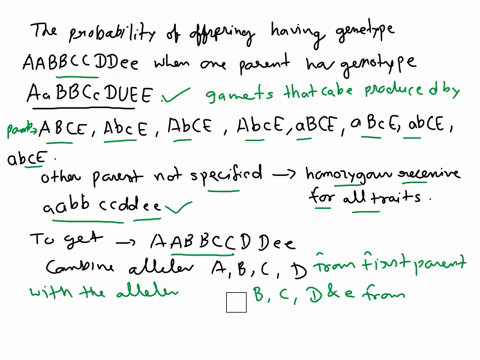 The probability of offspring having genetype
AABBCCDDee when one parent has genotype
AaBBCcDUEE. ✓ gamets that cabe produced by
ABCE, AbcE, AbCE, AbcE, aBCE, aBcE, abCE,
abcE.
other parent not specified → homozygous recenive
aabbccddee ✓ for all traits.
To get → AABBCCDDee
Combine alleler A, B, C, D from first parent
with the alleler B, C, D & e from